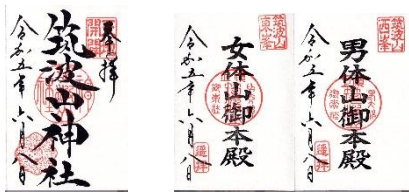 奉拝
筑波山神社
令和五年六月八日
筑波山
女体山御本殿
令和五年六月八日
遥拝
筑波山
男体山御本殿
令和五年六月八日
遥拝